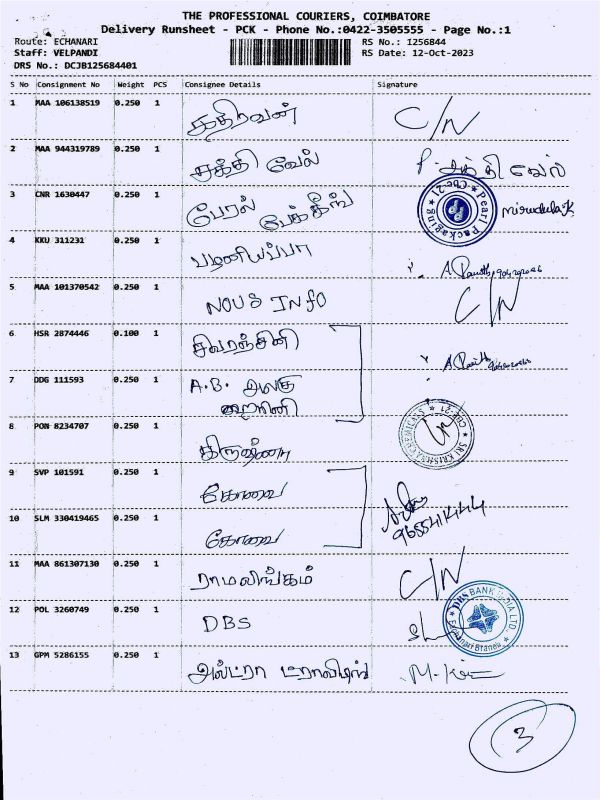 THE PROFESSIONAL COURIERS, COIMBATORE
Delivery Runsheet - PCK - Phone No.:0422-3505555 - Page No.:1
Route: ECHANARI RS No.: 1256844
Staff: VELPANDI RS Date: 12-Oct-2023
DRS No.: DCJB125684401
S No Consignment No Weight PCS Consignee Details Signature
1 MAA 106138519 0.250 1 கதிரவன் C/N
2 MAA 944319789 0.250 1 சக்தி வேல் P. சக்தி வேல்
3 CNR 1630447 0.250 1 பேரல் பேக்கீங்
Pearl Packaging Cbe-21
4 KKU 311231 0.250 1 பழனியப்பா
5 MAA 101370542 0.250 1 NOUS INFO C/N
6 HSR 2874446 0.100 1 சிவரஞ்சினி
7 DDG 111593 0.250 1 A.B. அழகு
ஹரினி
8 PON 8234707 0.250 1 கிருஷ்ணா
SRI KRISHNA CHEMICALS CBE-21
9 SVP 101591 0.250 1 கோவை
10 SLM 330419465 0.250 1 கோவை
9655414444
11 MAA 861307130 0.250 1 ராமலிங்கம் C/N
12 POL 3260749 0.250 1 DBS
DBS BANK INDIA LTD. Echanari Branch
13 GPM 5286155 0.250 1 அல்ட்ரா
3